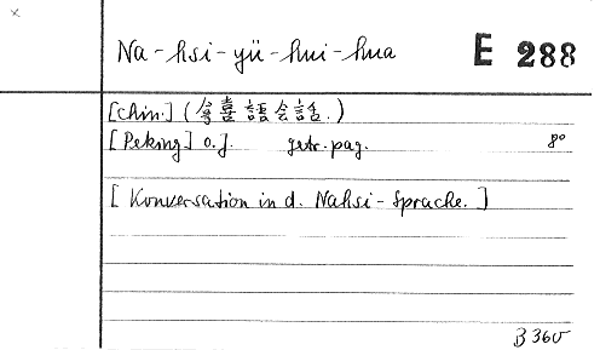 x
Na-hsi-yü-hui-hua E 288
[Chin.] (拿喜語会話.)
[Peking] o.J. getr. pag. 8°
[Konversation in d. Nahsi-Sprache.]
B 360